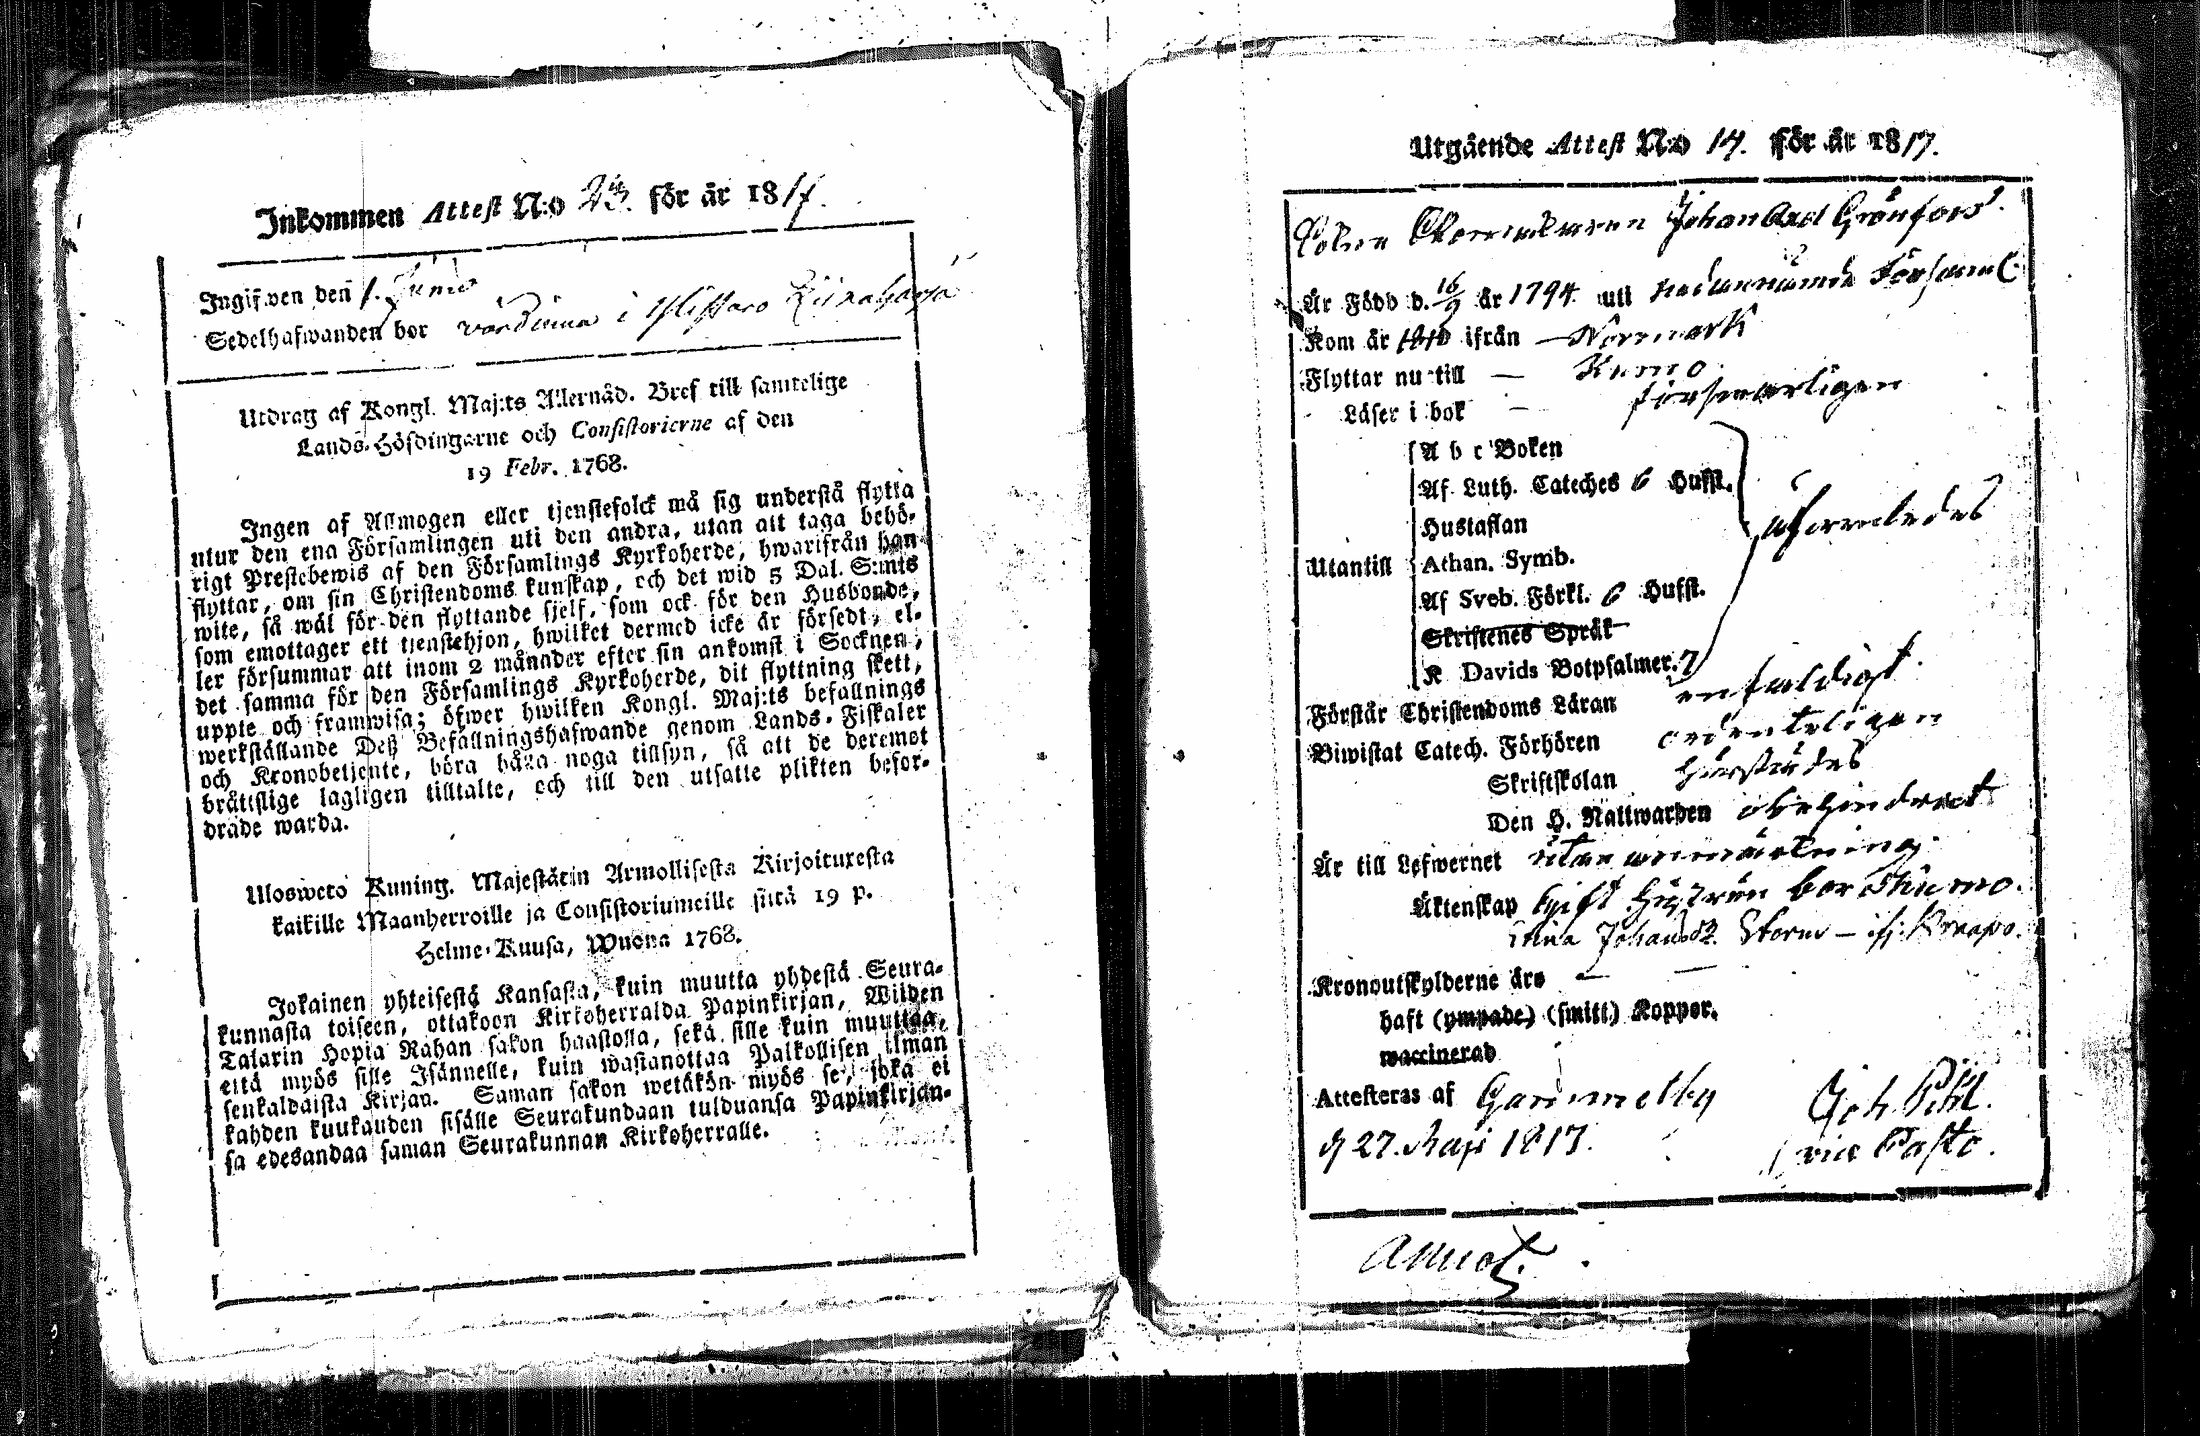 Inkommen Attest N:o 23. för år 1817.
Ingifwen den 1. Junii
Sedelhafwanden bor i
Utdrag af Kongl. Maj:ts Allernåd. Bref till samtelige
Lands-Höfdingarne och Consistorierne af den
19 Febr. 1768.
Ingen af Allmogen eller tjenstefolck må sig understå flytta
utur den ena Församlingen uti den andra, utan att taga behö-
rigt Prestebewis af den Församlings Kyrkoherde, hwarifrån han
flyttar, om sin Christendoms kunskap, och det wid 5 Dal. S:mts
wite, så wäl för den flyttande sjelf, som ock för den Husbonde,
som emottager ett tjenstehjon, hwilket dermed icke är försedt, el-
ler försummar att inom 2 månader efter sin ankomst i Socknen,
det samma för den Församlings Kyrkoherde, dit flyttning skett,
uppte och framwisa; öfwer hwilken Kongl. Maj:ts befallnings
werkställande Deß Befallningshafwande genom Lands-Fiskaler
och Kronobetjente, böra hålla noga tillsyn, så att de deremot
bråttslige lagligen tilltalte, och till den utsatte plikten befor-
drade warda.
Ulosweto Kuning. Majestätin Armollisesta Kirjoituxesta
kaikille Maanherroille ja Consistoriumeille siitä 19 p.
Helme-Kuusa, Wuona 1768.
Jokainen yhteisestä Kansasta, kuin muutta yhdestä Seura-
kunnasta toiseen, ottakoon Kirkoherralda Papinkirjan, Wiiden
Talarin Hopia Rahan sakon haastolla, sekä sille kuin muuttaa,
että myös sille Isännelle, kuin wastanottaa Palkollisen ilman
senkaldaista Kirjan. Saman sakon wetäkön myös se, joka ei
kahden kuukauden sisälle Seurakundaan tulduansa Papinkirjan-
sa edesandaa saman Seurakunnan Kirkoherralle.
Utgående Attest N:o 14. för år 1817.
Johan Axel Grönfors.
Är Född d. 16/9 år 1794 uti nedannämde Församl:
Kom år 1810 ifrån — Norrmark
Flyttar nu till — Kumo
Läser i bok — försvarligen
A b c Boken
Af Luth. Cateches 6 Hufst.
Hustaflan
Utantill Athan. Symb.
Af Sveb. Förkl. 6 Hufst.
Skriftenes Språk
K Davids Botpsalmer. 7
Förstår Christendoms Läran enfaldigt
Biwistat Catech. Förhören ordenteligen
Skriftskolan härstädes
Den H. Nattwarden obehindrad
Är till Lefwernet utan anmärkning
Äktenskap Gift Hustrun bor i Kumo.
Johansdr. Storm —
Kronoutskylderne äro —
haft (ympade) (smitt) Koppor.
waccinerad
Attesteras af Gammelby Joh. Pihl.
d 27. Maji 1817. vice Pasto.
Annot.